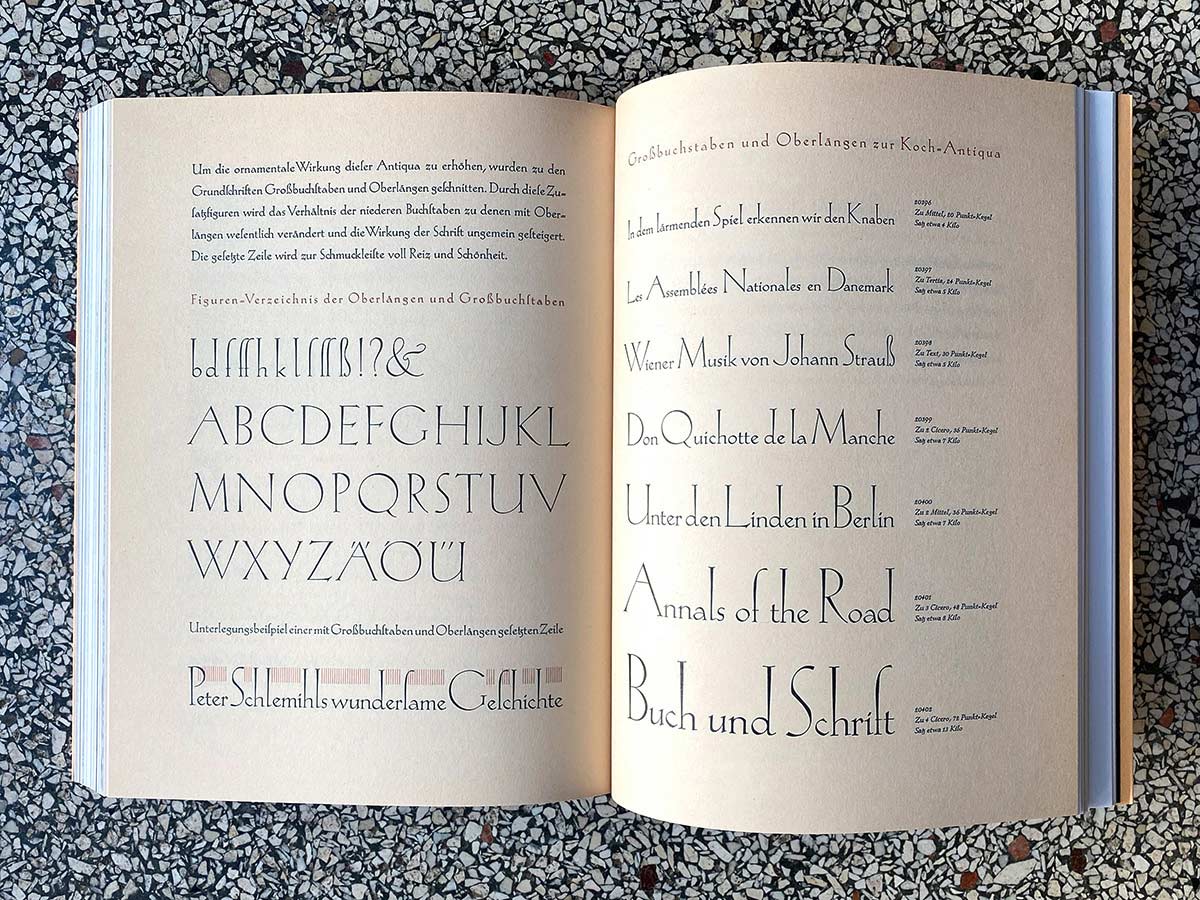 Um die ornamentale Wirkung dieſer Antiqua zu erhöhen, wurden zu den
Grundſchriften Großbuchſtaben und Oberlängen geſchnitten. Durch dieſe Zu-
ſatzfiguren wird das Verhältnis der niederen Buchſtaben zu denen mit Ober-
längen weſentlich verändert und die Wirkung der Schrift ungemein geſteigert.
Die geſetzte Zeile wird zur Schmuckleiſte voll Reiz und Schönheit.
Figuren-Verzeichnis der Oberlängen und Großbuchſtaben
b d f ff h k l ſ ſſ ß ! ? &
ABCDEFGHIJKL
MNOPQRSTUV
WXYZÄÖÜ
Unterlegungsbeiſpiel einer mit Großbuchſtaben und Oberlängen geſetzten Zeile
Peter Schlemihls wunderſame Geſchichte
Großbuchstaben und Oberlängen zur Koch-Antiqua
In dem lärmenden Spiel erkennen wir den Knaben
20396
Zu Mittel, 20 Punkt-Kegel
Satz etwa 4 Kilo
Les Assemblées Nationales en Danemark
20397
Zu Tertia, 24 Punkt-Kegel
Satz etwa 5 Kilo
Wiener Musik von Johann Strauß
20398
Zu Text, 30 Punkt-Kegel
Satz etwa 5 Kilo
Don Quichotte de la Manche
20399
Zu 2 Cicero, 36 Punkt-Kegel
Satz etwa 7 Kilo
Unter den Linden in Berlin
20400
Zu 2 Mittel, 36 Punkt-Kegel
Satz etwa 7 Kilo
Annals of the Road
20401
Zu 3 Cicero, 48 Punkt-Kegel
Satz etwa 8 Kilo
Buch und Schrift
20402
Zu 4 Cicero, 72 Punkt-Kegel
Satz etwa 13 Kilo